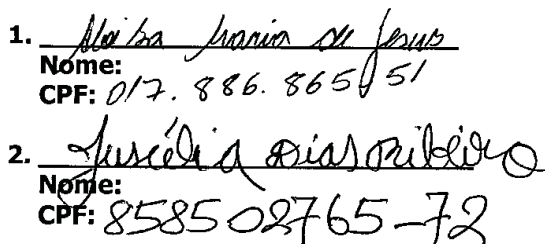 1. Maria de Jesus
Nome:
CPF: 017.886.865/51
2. Juscélia Dias Ribeiro
Nome:
CPF: 858502765-72